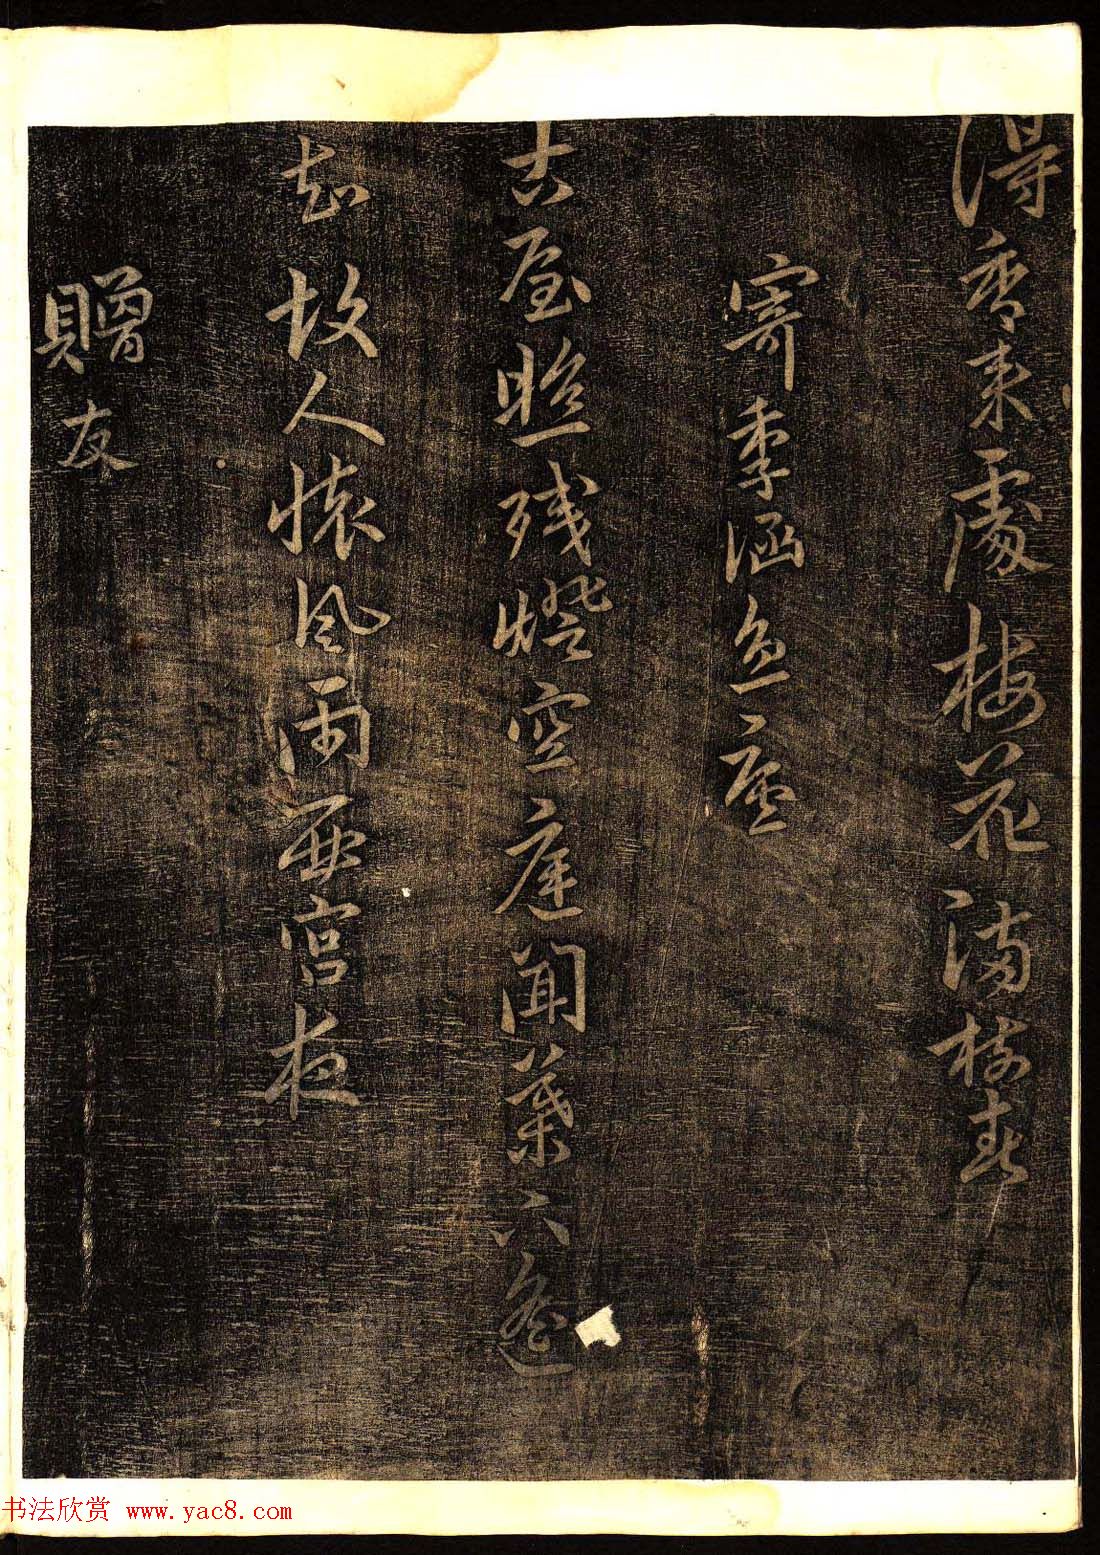 得香来處梅花滿樹春
寄季涵
古屋照残燈空庭聞葉下遙
知故人懷風雨西宮夜
贈友
书法欣赏 www.yac8.com